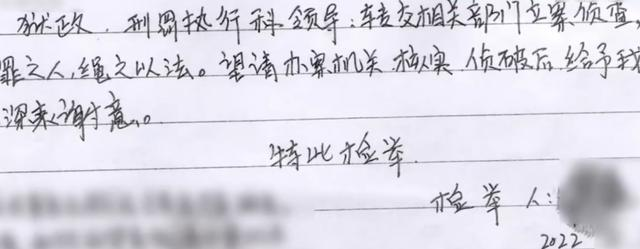 狱政、刑罚执行科领导:转交相关部门立案侦查,
罪之人,绳之以法。望请办案机关核实侦破后给予我
深表谢意。
特此检举
检举人:
2022